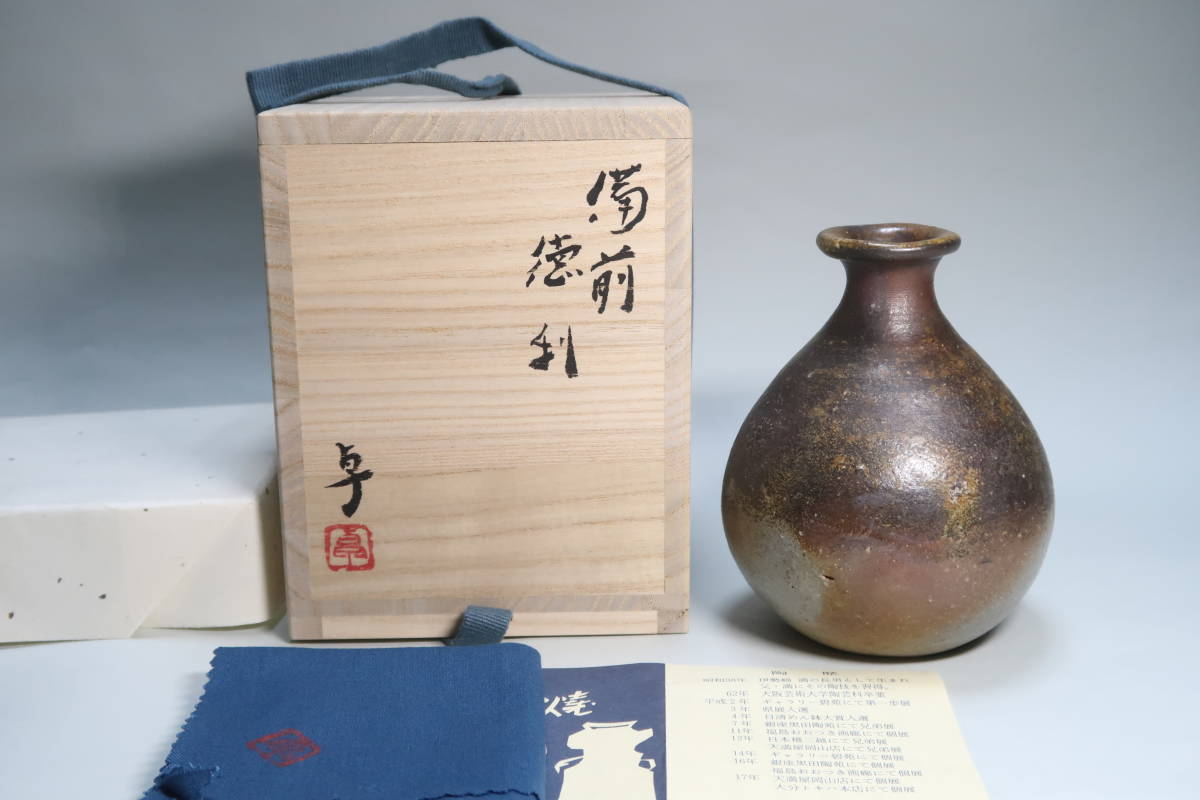 備前
徳利
卓
焼
陶 歴
昭和38年 伊勢﨑 満の長男として生まれ
父・満にその陶技を習得。
62年 大阪芸術大学陶芸科卒業
平成2年 ギャラリー碧苑にて第一歩展
3年 県展入選
4年 日清めん鉢大賞入選
7年 銀座黒田陶苑にて兄弟展
11年 福島おおつき画廊にて個展
12年 日本橋 越にて兄弟展
天満屋岡山店にて兄弟展
14年 ギャラリー碧苑にて個展
16年 銀座黒田陶苑にて個展
福島おおつき画廊にて個展
17年 天満屋岡山店にて個展
大分トキハ本店にて個展